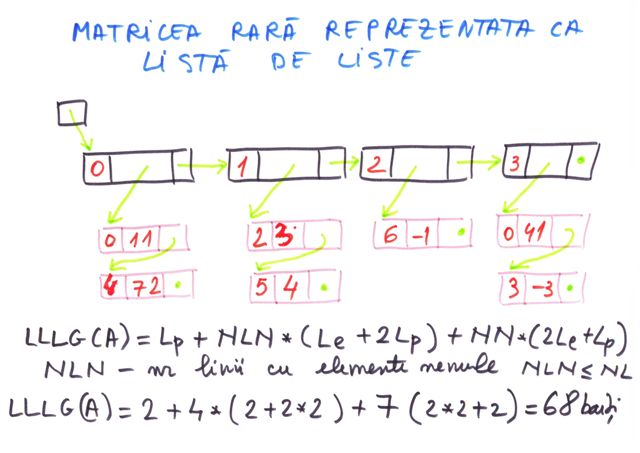 MATRICEA RARĂ REPREZENTATA CA
LISTĂ DE LISTE
0 1 2 3
0 11 2 3 6 -1 0 41
4 72 5 4 3 -3
LLLG(A) = Lp + NLN * (Le + 2Lp) + NN * (2Le + Lp)
NLN - nr linii cu elemente nenule NLN ≤ NL
LLLG(A) = 2 + 4 * (2 + 2 * 2) + 7 (2 * 2 + 2) = 68 baiți